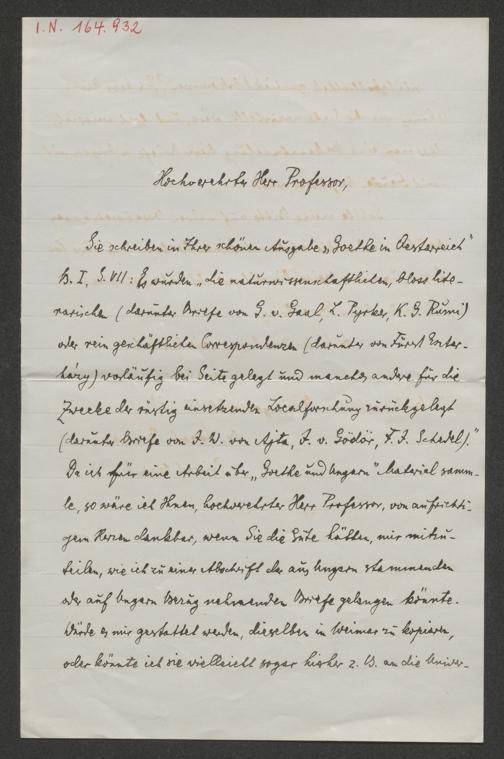 I.N. 164.932
Hochverehrter Herr Professor,
Sie schreiben in Ihrer schönen Ausgabe „Goethe in Oesterreich"
B. I, S. VII: Es wurden „die naturwissenschaftlichen, bloss lite-
rarischen (darunter Briefe von G. v. Gaal, L. Pyrker, K. G. Rumi)
oder rein geschäftlichen Correspondenzen (darunter von Fürst Ester-
házy) vorläufig bei Seite gelegt und manches andere für die
Zwecke der rüstig einsetzenden Localforschung zurückgelegt
(darunter Briefe von J. W. von Ajta, A. v. Gödör, F. J. Schedel)."
Da ich für eine Arbeit über „Goethe und Ungarn" Material samm-
le, so wäre ich Ihnen, hochverehrter Herr Professor, von aufrichti-
gem Herzen dankbar, wenn Sie die Güte hätten, mir mitzu-
teilen, wie ich zu einer Abschrift der aus Ungarn stammenden
oder auf Ungarn Bezug nehmenden Briefe gelangen könnte.
Würde es mir gestattet werden, dieselben in Weimar zu kopieren,
oder könnte ich sie vielleicht sogar hieher z. B. an die Univer-